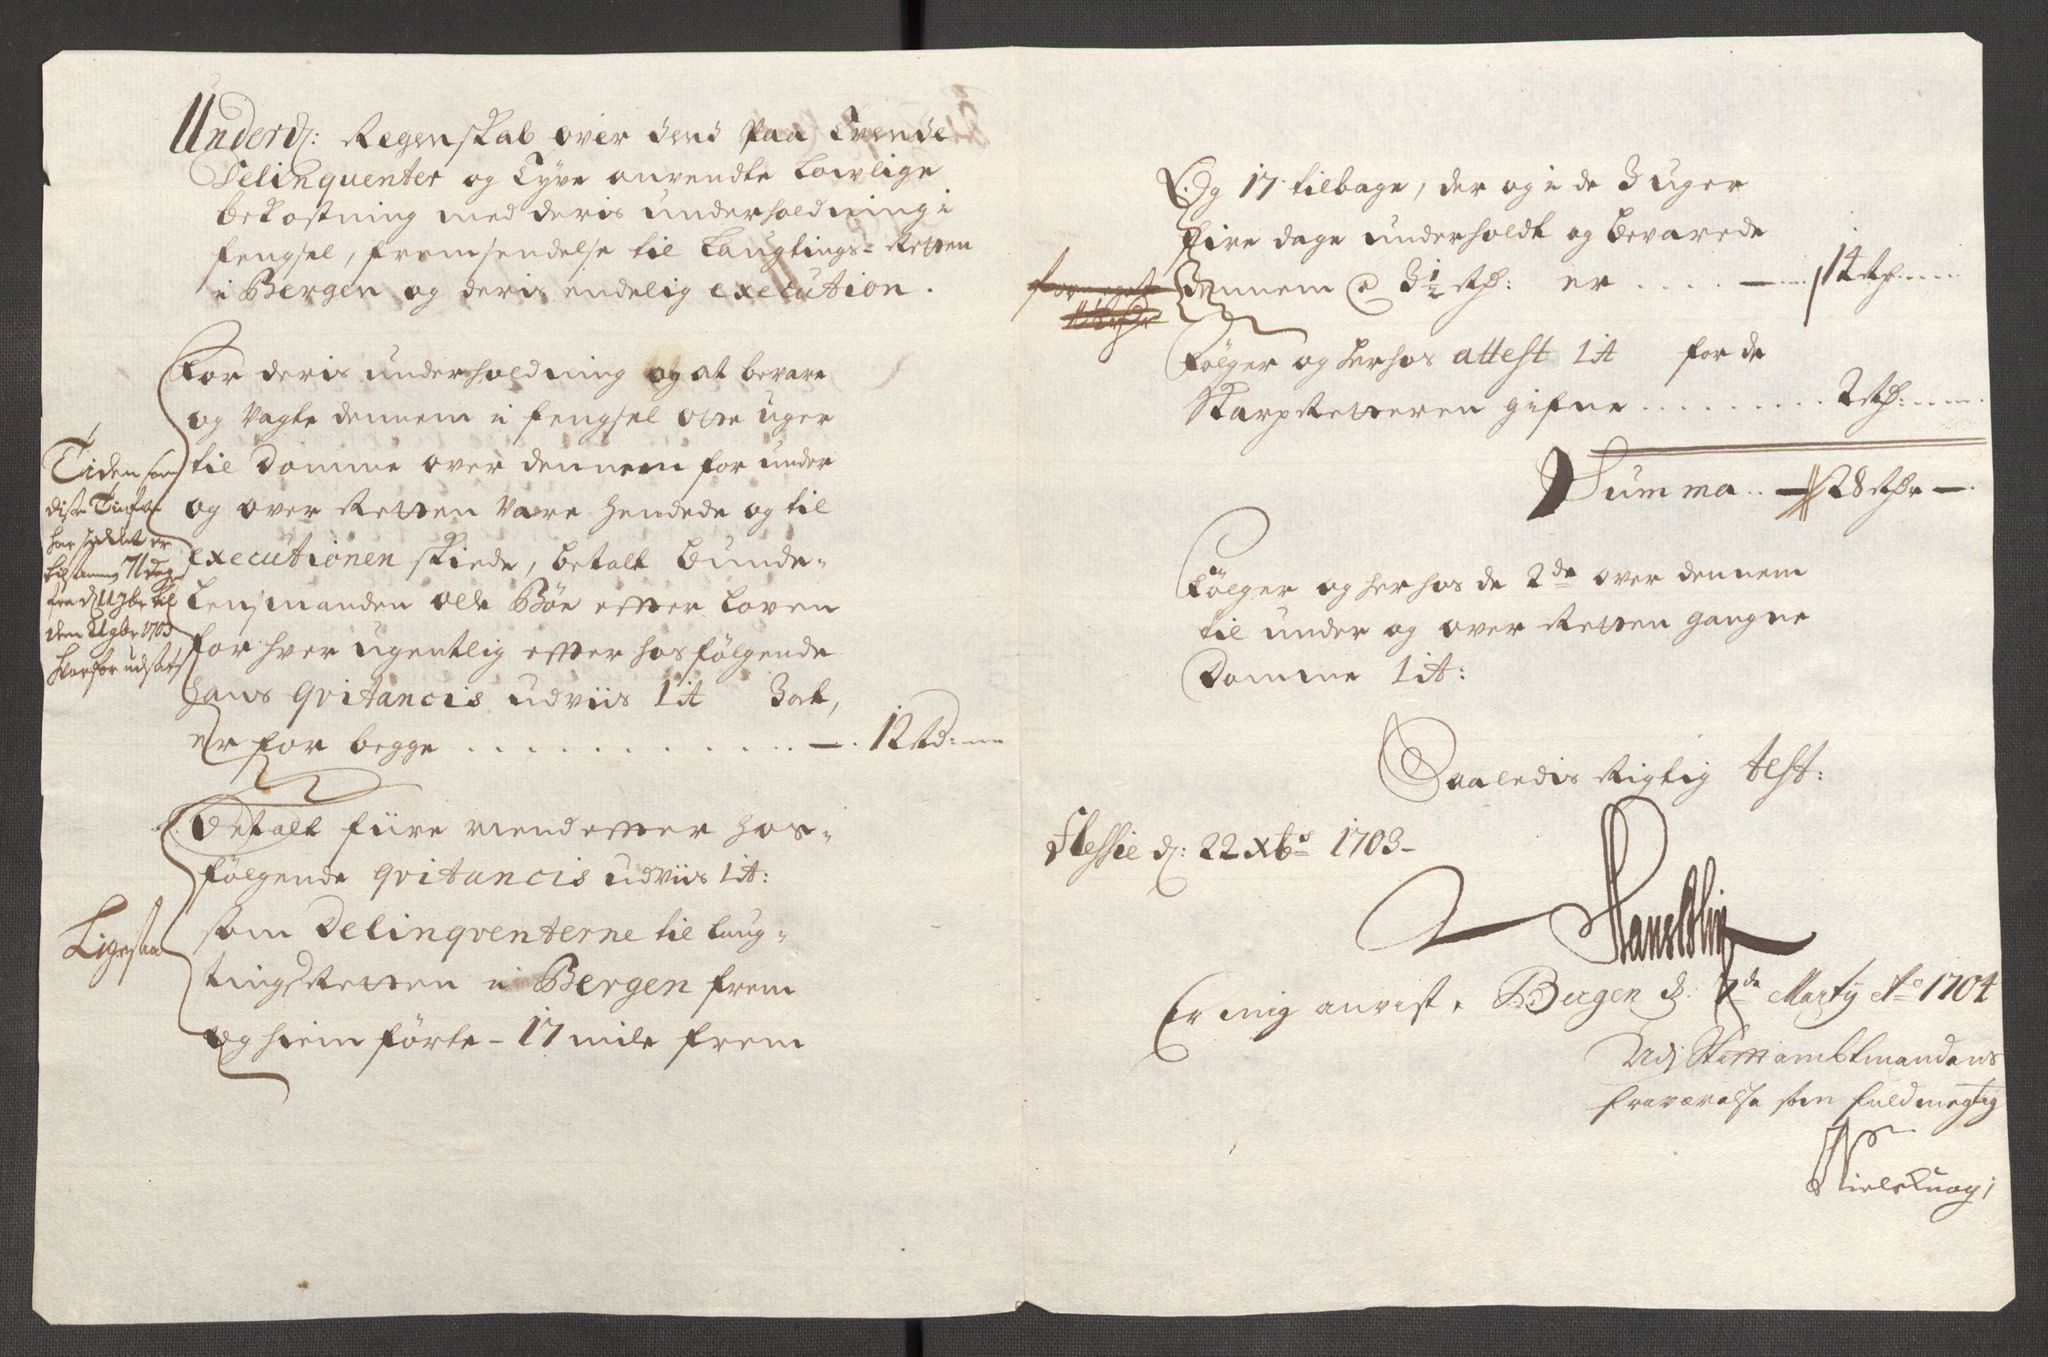 Underd: Regenskab over dend Paa Tvende
Delinquenter og Tyve anvendte Lowlige
bekostning med deris underholdning i
fengsel, fremsendelse til Laugtings-Retten
i Bergen og deris endelig execution.
For deris underholdning og at bevare
og Vagte dennem i fengsel otte uger
til Domme over dennem for under
og over Retten Vare hendede og til
executionen skiede, betalt Bunde-
Lensmanden Olle Böe efter Loven
for hver ugentlig efter hosfölgende
hans qvitancis udviis Lit 3 ort,
er for begge . . . . . . . . . . . . 12 Rd:
Tiden som
disse
har siddet er
71 dage
fra d 11 7br til
den 21 9br 1703
hvorfor udsat
Betalt fiire Mend efter hos-
fölgende qvitancis udviis Lit:
som Delinqventerne til Laug-
tings Retten i Bergen frem
og hiem förte - 17 mile frem
Ligesaa
Og 17 tilbage, der og i de 3 uger
fire dage underholdt og bevarede
Dennem a 3½ Rd: er . . . . 14 Rd:
Fölger og herhos attest Lit for de
Skarp Retteren gifne . . . . . . . . . 2 Rd:
Summa . . 28 Rdr
Fölger og herhos de 2de over dennem
til under og over Retten gangne
Domme Lit:
Saaledis Rigtig test:
Flessie d: 22 Xbs 1703-
Hans Blix
Er mig anvist. Bergen d: 7de Marty Ao 1704
Udj Stifftambtmandens
fraværelse som fuldmegtig
Niels Knagj